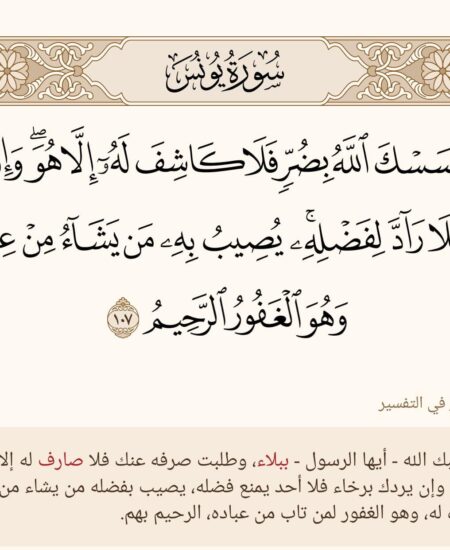 سُورَةُ يُونُسَ
سَسْكَ ٱللَّهُ بِضُرٍّۢ فَلَا كَاشِفَ لَهُۥٓ إِلَّا هُوَۖ وَإِ
لَا رَآدَّ لِفَضْلِهِۦۚ يُصِيبُ بِهِۦ مَن يَشَآءُ مِنْ عِ
وَهُوَ ٱلْغَفُورُ ٱلرَّحِيمُ ١٠٧
في التفسير
بك الله - أيها الرسول - ببلاء، وطلبت صرفه عنك فلا صارف له إلا
وإن يردك برخاء فلا أحد يمنع فضله، يصيب بفضله من يشاء من
له، وهو الغفور لمن تاب من عباده، الرحيم بهم.